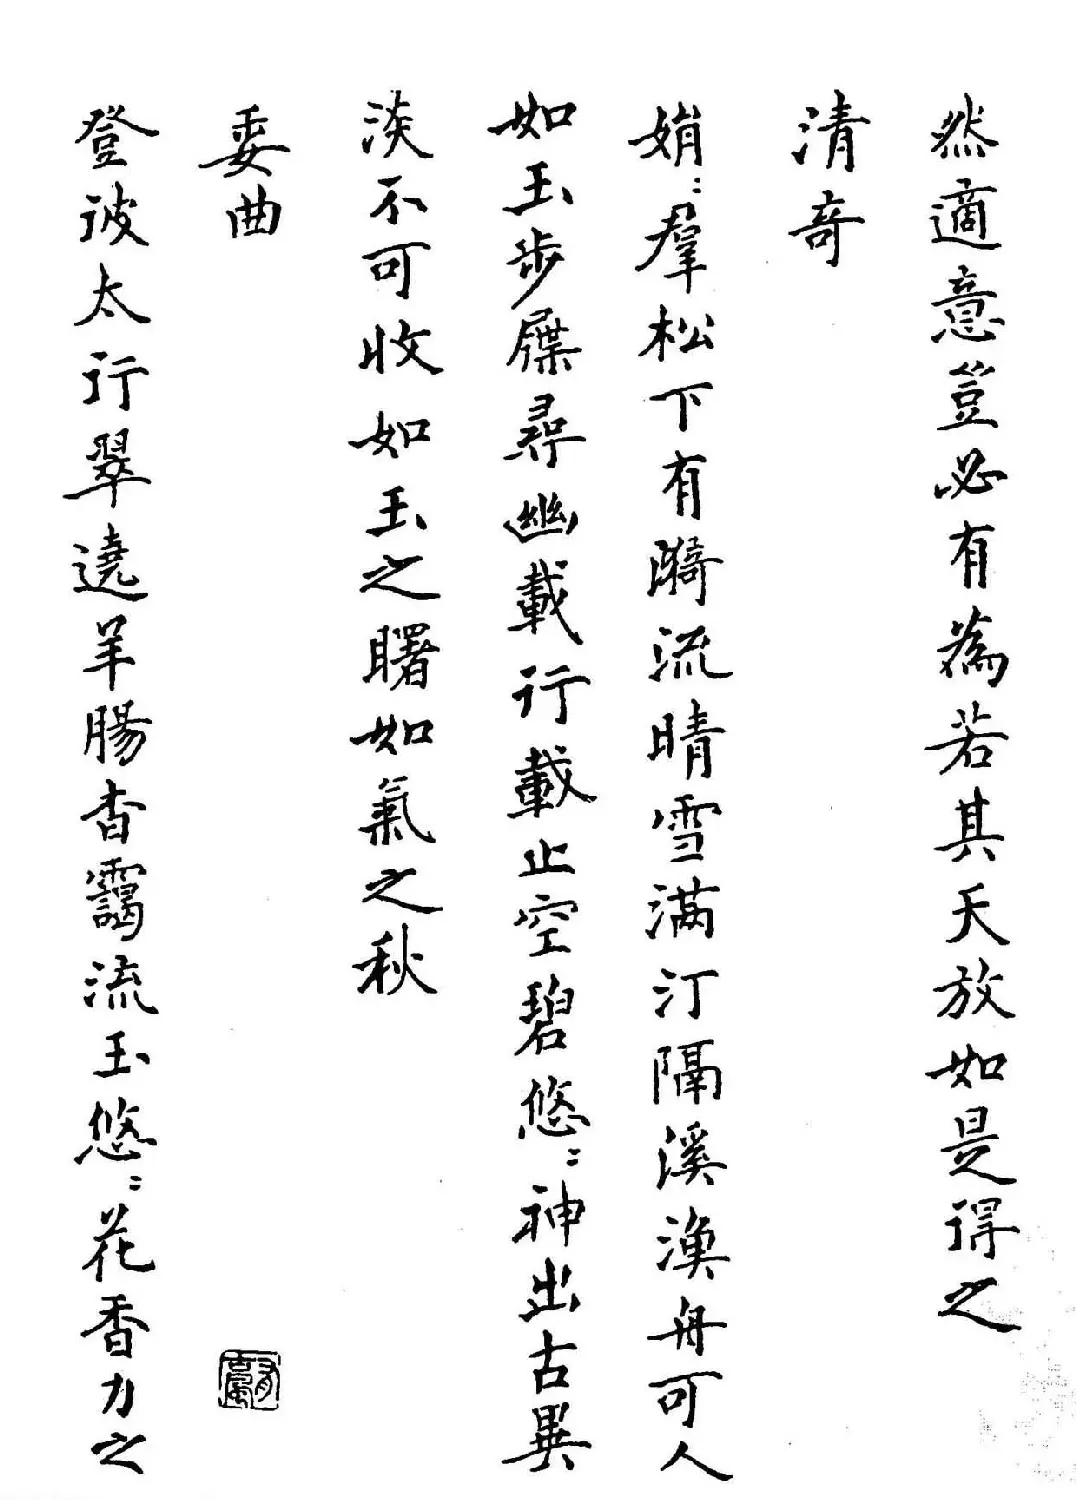 然適意豈必有為若其天放如是得之
清竒
娟〻羣松下有漪流晴雪滿汀隔溪漁舟可人
如玉步屧尋幽載行載止空碧悠〻神出古異
淡不可收如玉之曙如氣之秋
委曲
登彼太行翠遶羊腸杳靄流玉悠〻花香力之